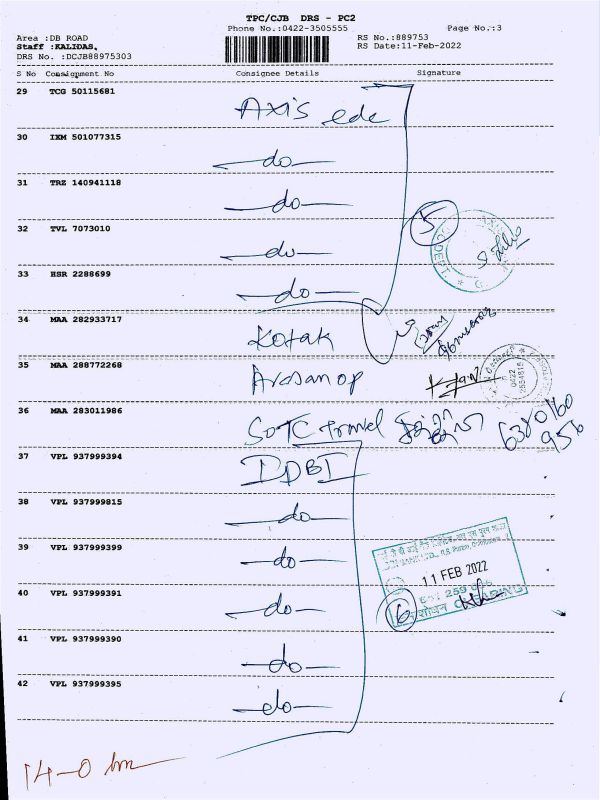 TPC/CJB DRS - PC2
Phone No.:0422-3505555
Page No.:3
Area :DB ROAD
Staff :KALIDAS,
DRS No. :DCJB88975303
RS No.:889753
RS Date:11-Feb-2022
S No Consignment No Consignee Details Signature
29 TCG 50115681 Axis
30 IXM 501077315 -do-
31 TRZ 140941118 -do-
5
32 TVL 7073010 -do-
33 HSR 2288699 -do-
34 MAA 282933717 Kotak
35 MAA 288772268
0422
36 MAA 283011986 SOTC Travel
37 VPL 937999394 IDBI
38 VPL 937999815 -do-
39 VPL 937999399 -do-
11 FEB 2022
40 VPL 937999391 -do-
6
CLEARING
41 VPL 937999390 -do-
42 VPL 937999395 -do-